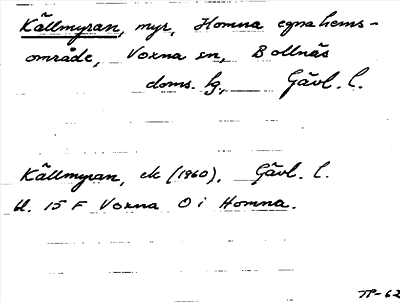 Källmyran, myr, Homna egnahems-
område, Voxna sn, Bollnäs
doms. hg, Gävl. l.
Källmyran, ek (1960). Gävl. l.
bl. 15 F Voxna O i Homna.
TP-62